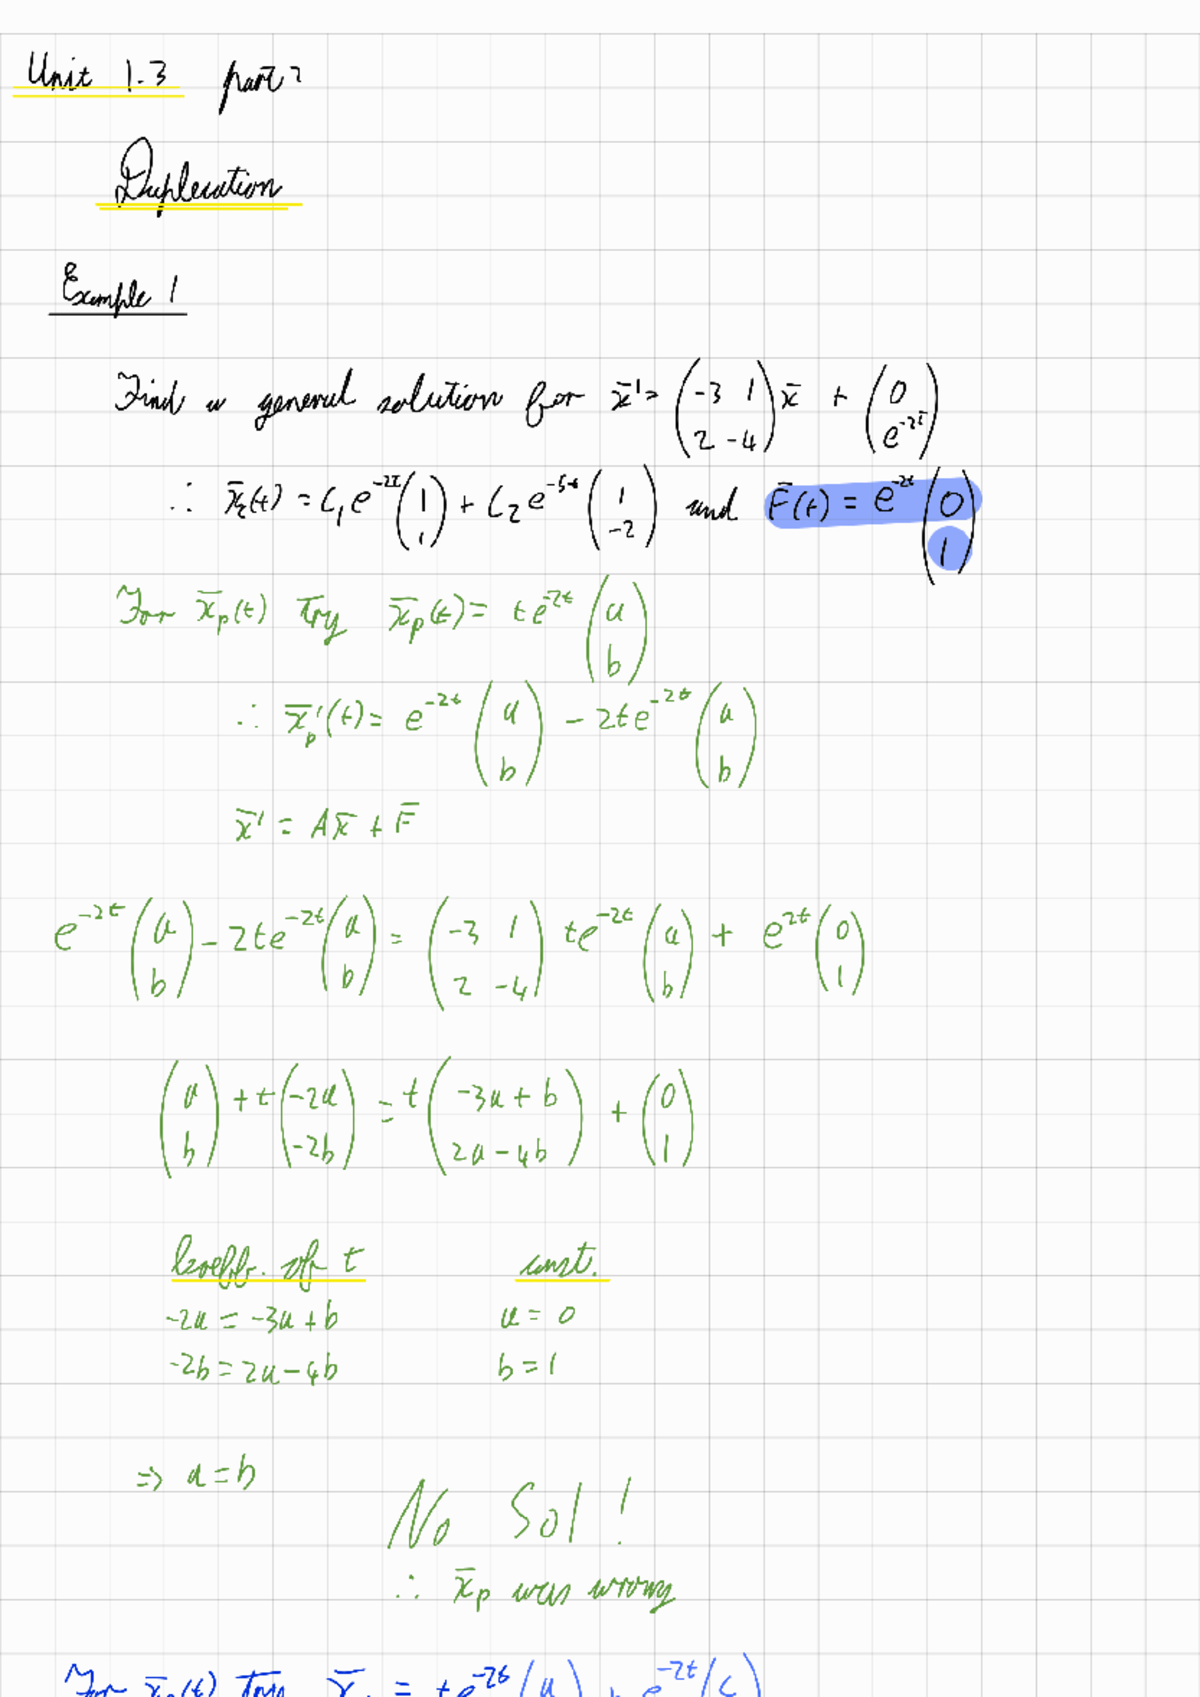 Unit 1.3 part 2
Duplication
Example 1
Find a general solution for x̄' = (-3 1; 2 -4) x̄ + (0; e^-2t)
∴ x̄_c(t) = C₁e^-2t (1; 1) + C₂e^-5t (1; -2) and F̄(t) = e^-2t (0; 1)
For x̄_p(t) Try x̄_p(t) = te^-2t (a; b)
∴ x̄_p'(t) = e^-2t (a; b) - 2te^-2t (a; b)
x̄' = Ax̄ + F̄
e^-2t (a; b) - 2te^-2t (a; b) = (-3 1; 2 -4) te^-2t (a; b) + e^2t (0; 1)
(a; b) + t (-2a; -2b) = t (-3a + b; 2a - 4b) + (0; 1)
Coeff. of t const.
-2a = -3a + b a = 0
-2b = 2a - 4b b = 1
⇒ a = b
No Sol!
∴ x̄_p was wrong
For x̄_p(t) Try x̄_p = te^-2t (a + e^-2t (c